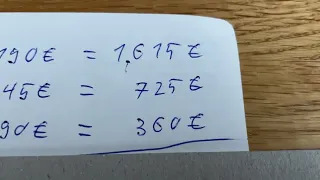 190€ = 1.615€
45€ = 725€
90€ = 360€